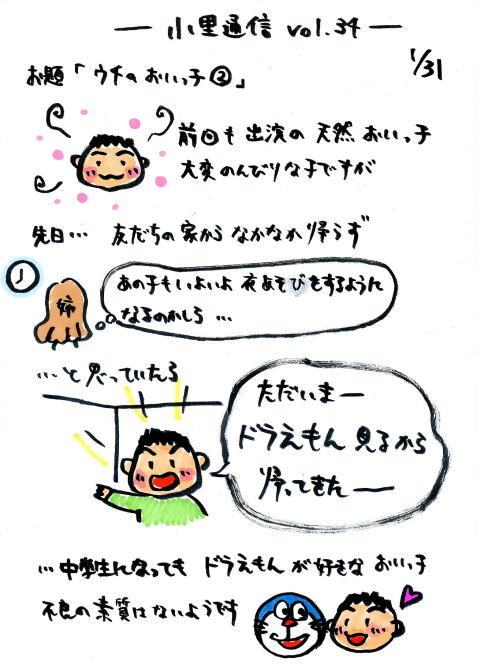 小里通信 vol.34
1/31
お題「ウチのおいっ子②」
前回も出演の天然おいっ子
大変のんびりな子ですが
先日… 友だちの家からなかなか帰らず
姉
あの子もいよいよ夜あそびをするように
なるのかしら…
…と思っていたら
ただいまー
ドラえもん見るから
帰ってきたー
…中学生になってもドラえもんが好きなおいっ子
不良の素質はないようです